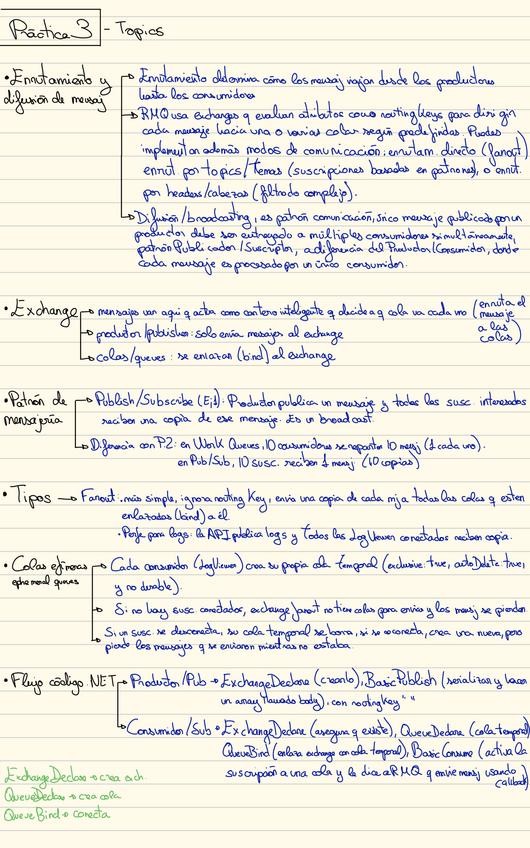 Práctica 3 - Topics
• Enrutamiento y difusión de mensaj
→ Enrutamiento determina cómo los mensaj viajan desde los productores
hasta los consumidores
→ RMQ usa exchanges q evaluan atributos como routing keys para dirigir
cada mensaje hacia una o varias colas según predefinidas. Puedes
implementar además modos de comunicación: enrutam. directo (fanout)
enrut por topics/temas (suscripciones basadas en patrones), o enrut.
por headers/cabezas (filtrado complejo).
→ Difusión/broadcasting, es patrón comunicación, único mensaje publicado por un
productor debe ser entregado a múltiples consumidores simultáneamente,
patrón Publicador/Suscriptor, a diferencia del Productor/Consumidor, donde
cada mensaje es procesado por un único consumidor.
• Exchange
→ mensajes van aqui q actua como cartero inteligente q decide a q cola va cada uno (enruta el
mensaje
a las
colas)
→ productor/publisher: solo envía mensajes al exchange
→ colas/queues: se enlazan (bind) al exchange
• Patrón de mensajería
→ Publish/Subscribe (Ej1): Productor publica un mensaje y todos los susc. interesados
reciben una copia de ese mensaje. Es un broadcast.
→ Diferencia con P2: en Work Queues, 10 consumidores se reparten 10 mensj (1 cada uno).
en Pub/Sub, 10 susc. reciben 1 mensj (10 copias)
• Tipos → Fanout: más simple, ignora routing Key, envia una copia de cada mj a todas las colas q esten
enlazadas (bind) a él.
• Perfe para logs: la API publica logs y todos los LogViewer conectados reciben copia.
• Colas efímeras
ephemeral queues
→ Cada consumidor (LogViewer) crea su propia cola temporal (exclusive: true, autoDelete: true,
y no durable).
→ Si no hay susc conectados, exchange fanout no tien colas para envios y los mensj se pierden
→ Si un susc. se desconecta, su cola temporal se borra, si se reconecta, crea una nueva, pero
pierde los mensajes q se enviaron mientras no estaba.
• Flujo código .NET
→ Productor/Pub → ExchangeDeclare (crearlo), BasicPublish (serializar y hacer
un array llamado body), con routingKey " "
→ Consumidor/Sub • ExchangeDeclare (asegura q existe), QueueDeclare (cola temporal)
QueueBind (enlaza exchange con cola temporal), BasicConsume (activa la
suscripción a una cola y le dice a RMQ q envie mensj usando
callback)
ExchangeDeclare → crea exch.
QueueDeclare → crea cola
QueueBind → conecta